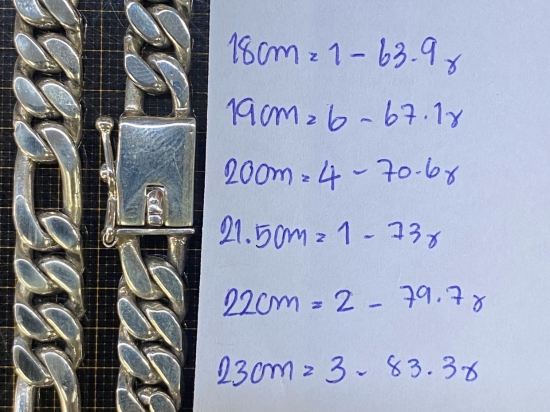 18cm = 1 - 63.9g
19cm = 6 - 67.1g
20cm = 4 - 70.6g
21.5cm = 1 - 73g
22cm = 2 - 79.7g
23cm = 3 - 83.3g